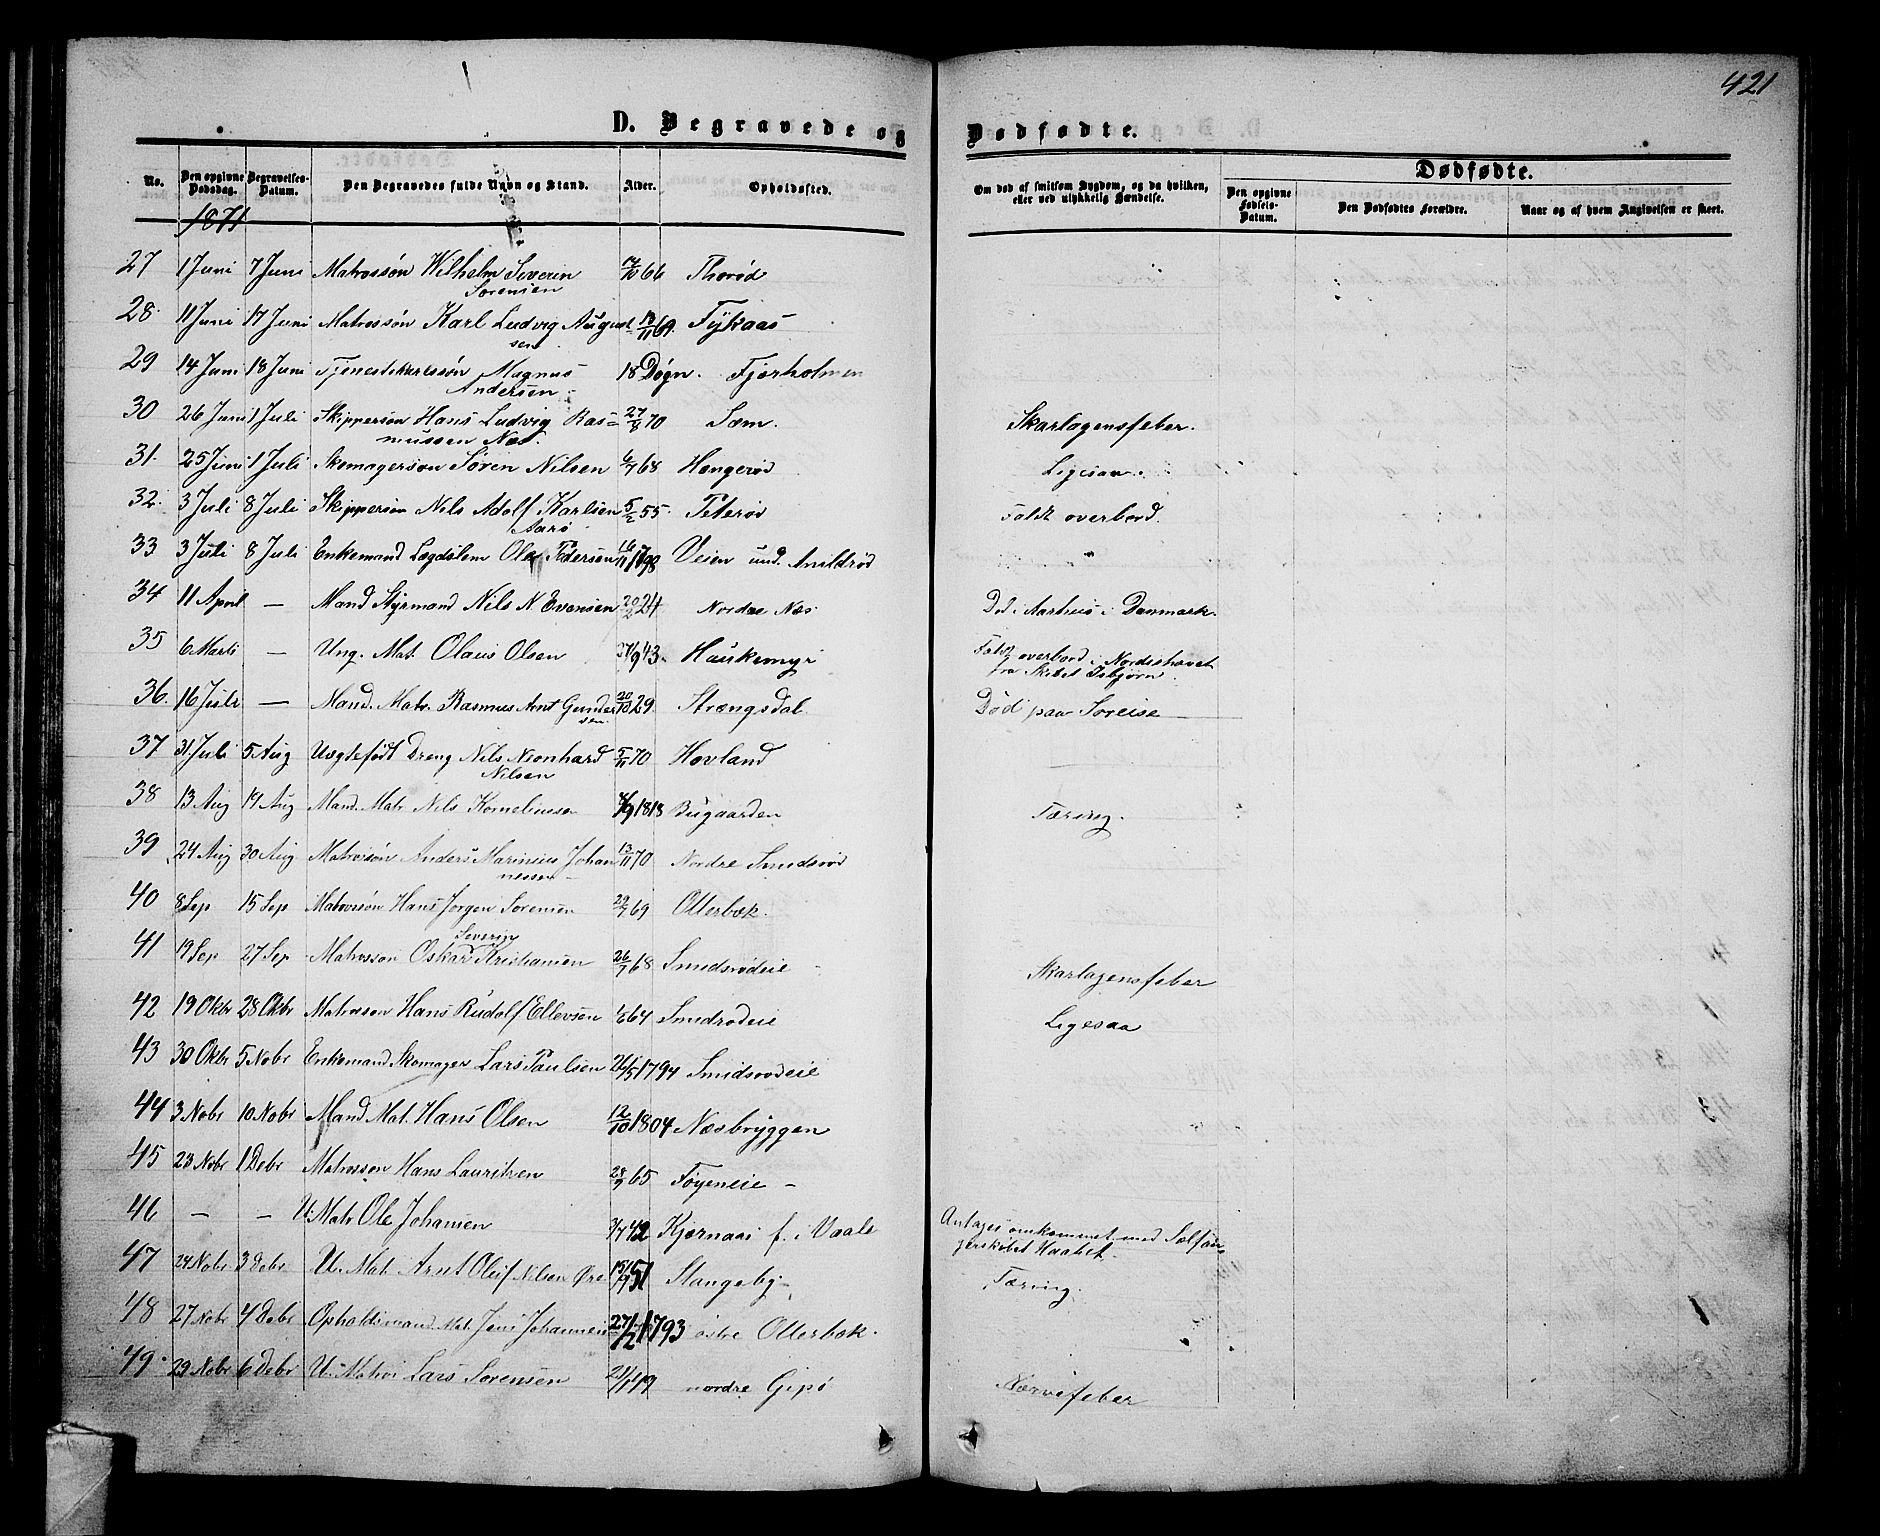 421
D. Begravede og Dødfødte.
No. Den opgivne Dødsdag. Begravelses-Datum. Den Begravedes fulde Navn og Stand. Alder. Opholdssted. Om død af smitsom Sygdom, og da hvilken, eller ved ulykkelig Hændelse. Dødfødte. Den opgivne Fødsels-Datum. Den Dødfødtes Forældre. Naar og af hvem Angivelsen er skeet.
1871
27 1 Juni 7 Juni Matrossøn Wilhelm Severin 66 Thorød
Sørensen
28. 11 Juni 17 Juni Matrossøn Karl Ludvig August 69. Fykaas
sen
29 14 Juni 18 Juni Tjenestekarlssøn Magnus 18 Døgn. Fjerholmen
Andersen
30 26 Juni 1 Juli Skippersøn Hans Ludvig Ras= 27/8 70 Sæm. Skarlagensfeber.
mussen Næs.
31. 25 Juni 1 Juli Skomagersøn Søren Nilsen 6/7 68 Hengerød Ligesaa.
32. 3 Juli 8 Juli Skippersøn Nils Adolf Karlsen 5/2 55. Peterød Faldt overbord.
Aarø
33 3 Juli 8 Juli Enkemand Lægdslem Ole Pedersen 16/11 1798 Veien und. Arildsrød
34 11 April — Mand Styrmand Nils N Evensen 20/2 24 Nordre Næs Død i Aarhus i Danmark.
35 6 Marts — Ung. Mat. Olaus Olsen 43. Haukemyr Faldt overbord i Nordishavet
fra Skibet Isbjørn.
36. 16 Juli — Mand. Matr. Rasmus Arnt Gunder 20/10 29 Strængsdal Død paa Søreise
sen
37 31. Juli 5 Aug Uægtefødt Dreng Nils Neonhard 5/11 70 Hovland
Nilsen
38 13 Aug 19 Aug Mand. Matr Nils Korneliussen 1818 Bugaarden Tæring.
39 24 Aug 30 Aug Matrossøn Anders Marinius Johan 13/11 70 Nordre Smidsrød
nessen
40 8 Sep 15 Sep Matrossøn Hans Jørgen Sørensen 29/7 69 Otterbæk.
41 19 Sep 27 Sep Matrossøn Oskar Severin Kristiansen 26/7 68 Smidsrødeie Skarlagensfeber
42 19 Okbr 28 Okbr Matrossøn Hans Rudolf Ellevsen 64 Smidsrødeie Ligesaa
43 30 Okbr 5 Nobr Enkemand Skomager Lars Paulsen 1794 Smidsrødeie
44 3 Nobr 10 Nobr Mand Mat. Hans Olsen 12/10 1804 Næsbryggen
45 23 Nobr 1 Debr Matrossøn Hans Lauritzen 28/9 65 Føyeneie
46 — — U. Matr Ole Johansen 3/7 42 Kjernaas f. i Vaale Antages omkommet med Sælfan=
gerskibet Haabet.
47 24 Nobr 3 Debr U. Mat. Arnt Oluf Nilsen Øre 15/9 51 Stangeby Tæring.
48 27 Nobr 4 Debr Opholdsmand Mat. Jens Johannesen 27/12 1793 østre Otterbæk.
49. 29 Nobr 6 Debr U. Matros Lars Sørensen 49 nordre Gipø Nærvefeber